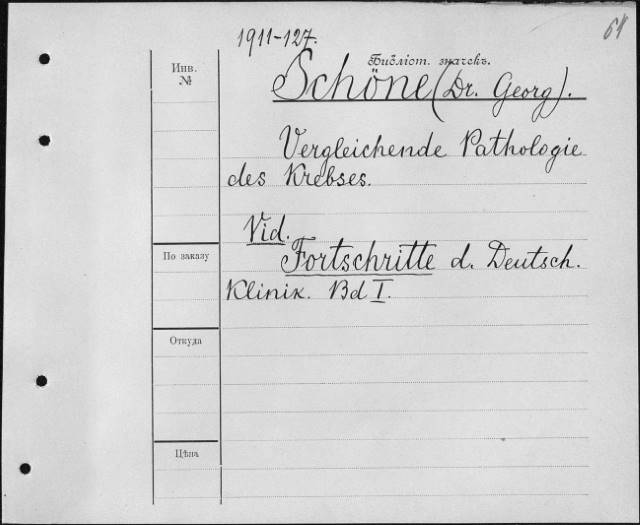 64
1911-127.
Инв.
№
Библіот. значекъ.
Schöne (Dr. Georg).
Vergleichende Pathologie
des Krebses.
Vid.
Fortschritte d. Deutsch.
Klinik. Bd I.
По заказу
Откуда
Цѣна